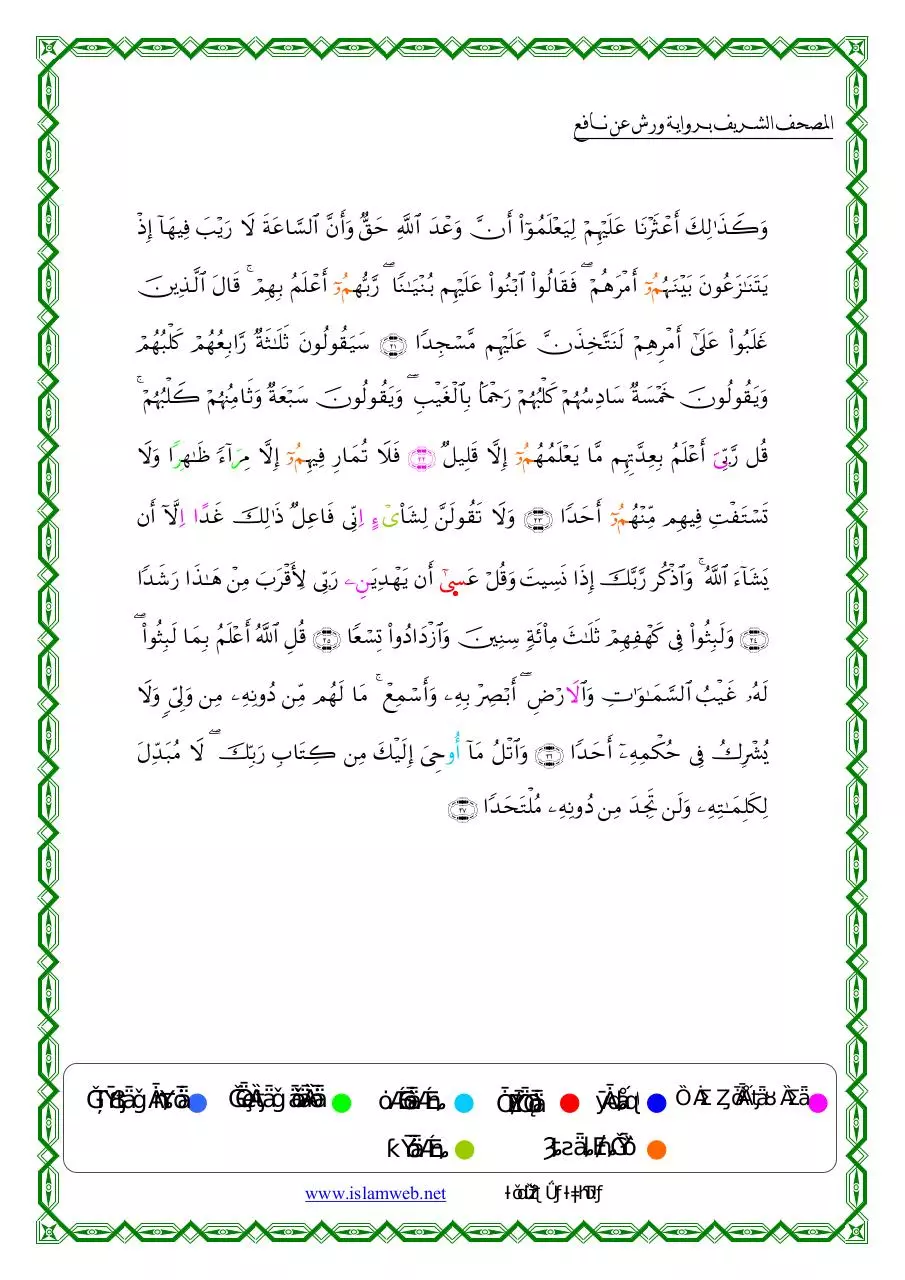 المصحف الشريف برواية ورش عن نافع
وَكَذَٰلِكَ أَعْثَرْنَا عَلَيْهِمْ لِيَعْلَمُوٓا۟ أَنَّ وَعْدَ ٱللَّهِ حَقٌّ وَأَنَّ ٱلسَّاعَةَ لَا رَيْبَ فِيهَآ إِذْ
يَتَنَٰزَعُونَ بَيْنَهُمُۥٓ أَمْرَهُمْ ۖ فَقَالُوا۟ ٱبْنُوا۟ عَلَيْهِم بُنْيَٰنًا ۖ رَّبُّهُمُۥٓ أَعْلَمُ بِهِمْ ۚ قَالَ ٱلَّذِينَ
غَلَبُوا۟ عَلَىٰٓ أَمْرِهِمْ لَنَتَّخِذَنَّ عَلَيْهِم مَّسْجِدًا ٢١ سَيَقُولُونَ ثَلَٰثَةٌ رَّابِعُهُمْ كَلْبُهُمْ
وَيَقُولُونَ خَمْسَةٌ سَادِسُهُمْ كَلْبُهُمْ رَجْمًۢا بِٱلْغَيْبِ ۖ وَيَقُولُونَ سَبْعَةٌ وَثَامِنُهُمْ كَلْبُهُمْ ۚ
قُل رَّبِّىَ أَعْلَمُ بِعِدَّتِهِم مَّا يَعْلَمُهُمُۥٓ إِلَّا قَلِيلٌ ٢٢ فَلَا تُمَارِ فِيهِمُۥٓ إِلَّا مِرَآءً ظَٰهِرًا وَلَا
تَسْتَفْتِ فِيهِم مِّنْهُمُۥٓ أَحَدًا ٢٣ وَلَا تَقُولَنَّ لِشَا۟ىْءٍ اِنِّى فَاعِلٌ ذَٰلِكَ غَدًا اِلَّآ أَن
يَشَآءَ ٱللَّهُ ۚ وَٱذْكُر رَّبَّكَ إِذَا نَسِيتَ وَقُلْ عَسىٰٓ أَن يَهْدِيَنِۦ رَبِّى لِأَقْرَبَ مِنْ هَٰذَا رَشَدًا
٢٤ وَلَبِثُوا۟ فِى كَهْفِهِمْ ثَلَٰثَ مِا۟ئَةٍ سِنِينَ وَٱزْدَادُوا۟ تِسْعًا ٢٥ قُلِ ٱللَّهُ أَعْلَمُ بِمَا لَبِثُوا۟ ۖ
لَهُۥ غَيْبُ ٱلسَّمَٰوَٰتِ وَٱلَارْضِ ۖ أَبْصِرْ بِهِۦ وَأَسْمِعْ ۚ مَا لَهُم مِّن دُونِهِۦ مِن وَلِىٍّ وَلَا
يُشْرِكُ فِى حُكْمِهِۦٓ أَحَدًا ٢٦ وَٱتْلُ مَآ أُوحِىَ إِلَيْكَ مِن كِتَابِ رَبِّكَ ۖ لَا مُبَدِّلَ
لِكَلِمَٰتِهِۦ وَلَن تَجِدَ مِن دُونِهِۦ مُلْتَحَدًا ٢٧
www.islamweb.net